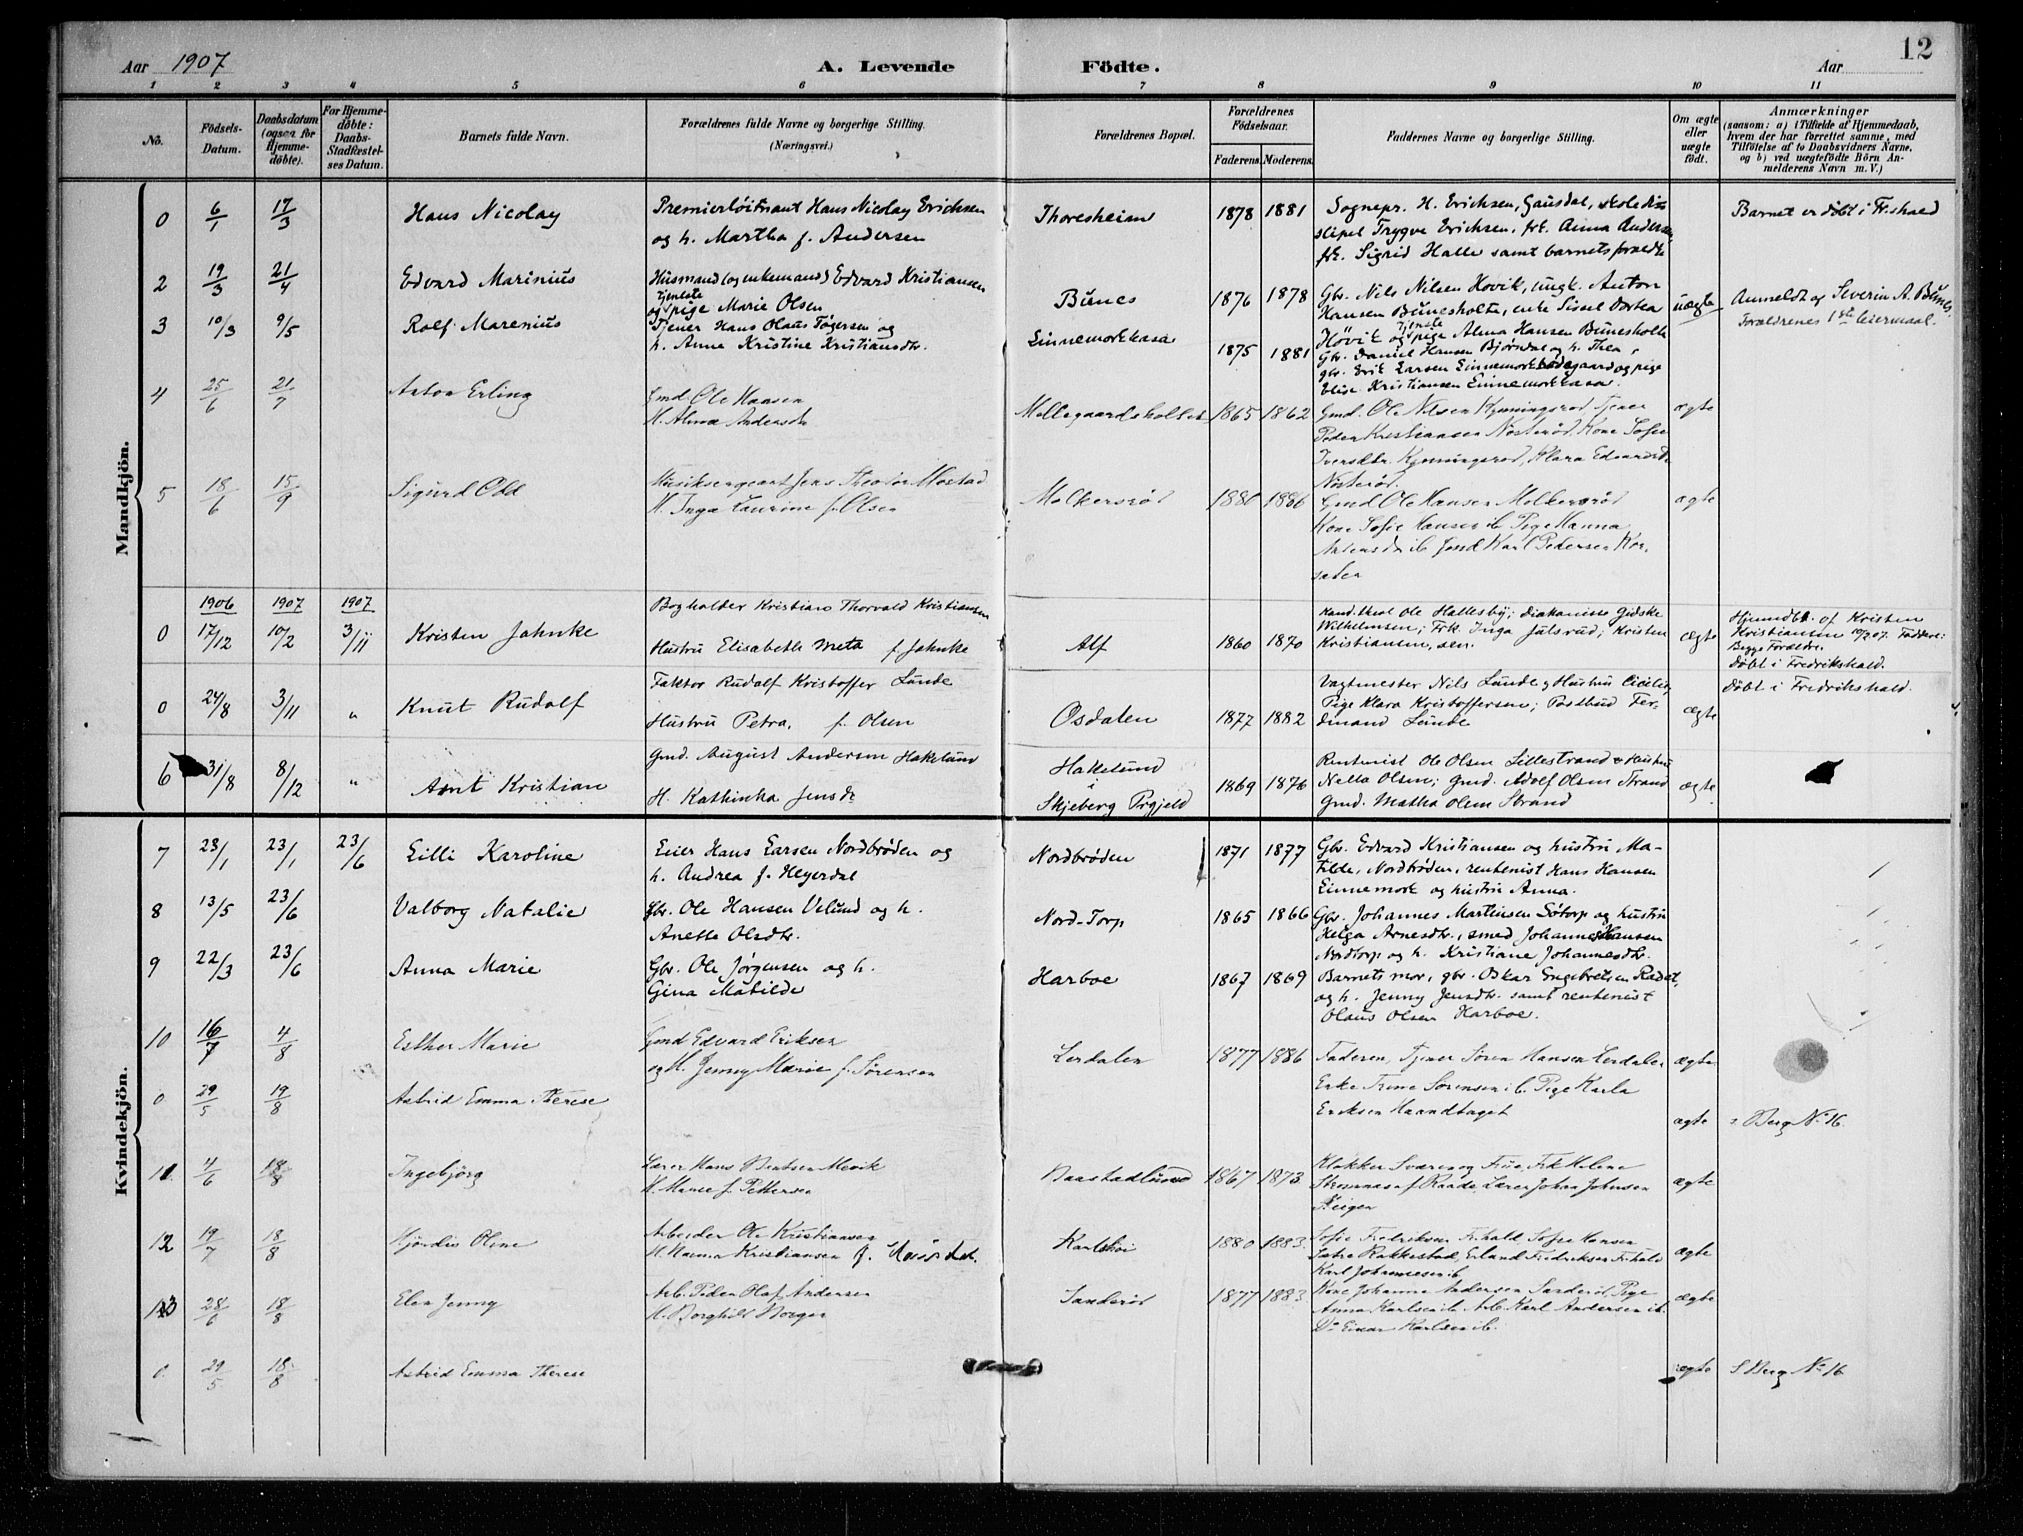 Aar 1907
A. Levende Födte.
Aar
12
1 2 3 4 5 6 7 8 9 10 11
No.
Födsels-Datum.
Daabsdatum (ogsaa for Hjemmedöbte).
For Hjemmedöbte: Daabs-Stadfæstelses Datum.
Barnets fulde Navn.
Forældrenes fulde Navne og borgerlige Stilling.
(Næringsvei.)
Forældrenes Bopæl.
Forældrenes Födselsaar.
Faderens. Moderens.
Faddernes Navne og borgerlige Stilling.
Om ægte eller uægte födt.
Anmærkninger
(saasom: a) i Tilfælde af Hjemmedaab,
hvem der har forrettet samme, med
Tilföielse af to Daabsvidners Navne,
og b) ved uægtefödte Börn An-
melderens Navn m. V.)
Mandkjön.
0 6/1 17/3 Hans Nicolay
Premierløitnant Hans Nicolay Erichsen
og h. Martha f. Andersen
Thoresheim 1878 1881
Sognepr. H. Erichsen, Gausdal, skoledis
slipel Trygve Erichsen, frk. Anna Andersen,
frk. Sigrid Halle samt barnets forældre
Barnet er døbt i Fr.shald
2 19/3 21/4 Edvard Marinius
Husmand (og enkemand) Edvard Kristiansen
og tjenestepige Marie Olsen
Bunes 1876 1878
Gbr. Nils Nilsen Hovik, ungk. Anton
Hansen Bunesholte, enke Sissel Dortea
Hövik og tjenestepige Alma Hansen Bunesholte
uægte
Anmeldt og Severin A. Bunes.
Forældrenes 1ste leiermaal.
3 10/3 9/5 Rolf Marenius
Tjener Hans Olaus Tøgersen og
h. Anne Kristine Kristiansdtr.
Linnemorkkasa 1875 1881
Gbr. Daniel Hansen Bjørndal og h. Thea,
gbr. Erik Larsen Linnemork ødegaard og pige
Elise Kristiansen Linnemorkkasa.
4 25/6 21/7 Anton Erling
Gmd Ole Hansen
H. Alma Andersdtr
Mellegaardsholtet 1865 1862
Gmd. Ole Nilsen Kynningsrød, Tjener
Peder Kristiansen Nøsterød, Kone Sofie
Iversdtr. Kynningsrød, Klara Edvardsdtr
Nösterød.
ægte
5 18/6 15/9 Sigurd Odd
Musiksergeant Jens Theodor Mostad
H. Inga Laurine f. Olsen
Molkersrød 1880 1886
Gmd Ole Hansen Molkersrød
Kone Sofie Hansen ib. Pige Hanna
ib. Gmd Karl Pedersen Kor-
sæden
ægte
1906 1907 1907
0 17/12 10/2 3/11 Kristen Jahnke
Bogholder Kristian Thorvald Kristiansen
Hustru Elisabeth Meta f. Jahnke
Alf 1860 1870
Kand. theol Ole Hallesby; diakonisse Gidske
Wilhelmsen; Frk. Inga Julsrud; Kristen
Kristiansen, sen.
ægte
Hjemdbt. af Kristen
Kristiansen 10/2 07. Faddere:
Begge Forældre.
Døbt i Fredrikshald.
0 24/8 3/11 " Knut Rudolf
Faktor Rudolf Kristoffer Lunde
Hustru Petra, f. Olsen
Osdalen 1877 1882
Vagtmester Nils Lunde og Hustru Cicilie
Pige Klara Kristoffersen; Postbud Fer-
dinand Lunde
ægte
Døbt i Fredrikshald.
6 31/8 8/12 " Arnt Kristian
Gmd. August Andersen Hakelund
H. Kathinka Jensdr
Hakelund
i
Skjeberg Prgjeld 1869 1876
Rentenist Ole Olsen Lillestrand & Hustru
Nella Olsen; Gmd. Adolf Olsen Strand
Gmd. Mathea Olsen Strand
ægte
Kvindekjön.
7 23/1 23/1 23/6 Lilli Karoline
Eier Hans Larsen Nordbrøden og
h. Andrea f. Heyerdal
Nordbrøden 1871 1877
Gbr. Edvard Kristiansen og hustru Ma-
tilde, Nordbrøden, rentenist Hans Hansen
Linnemork og hustru Anna.
8 13/5 23/6 Valborg Natalie
Gbr. Ole Hansen Velund og h.
Anette Olsdtr.
Nord-Torp 1865 1866
Gbr. Johannes Martinsen Søtorp og hustru
Helga Arnesdtr., smed Johannes Hansen
Nordtorp og h. Kristiane Johannesdtr.
9 22/3 23/6 Anna Marie
Gbr. Ole Jørgensen og h.
Gina Matilde
Harboe 1867 1869
Barnets mor, gbr. Oskar Engebretsen Rødet,
og h. Jenny Jensdtr. samt rentenist
Olaus Olsen Harboe.
10 16/7 4/8 Esther Marie
Gmd Edvard Eriksen
og H. Jenny Marie f. Sørensen
Lerdalen 1877 1886
Faderen, Tjener Søren Hansen Lerdalen
Enke Trine Sørensen ib. Pige Karla
Eriksen Haandtaget
ægte
0 29/5 19/8 Astrid Emma Therese
ægte
s. Berg No 16.
11 4/6 18/8 Ingebjørg
Lærer Hans Berntsen Mevik
H. Marie f. Pettersen
Baastadlund 1867 1873
Klokker Sværen og Frue, Frk Helene
af Raade, Lærer Johan Johnsen
ægte
12 19/7 18/8 Hjördis Oline
Arbeider Ole Kristiansen
H. Hanna Kristiansen f.
Karlshøi 1880 1883
Sofie Fredriksen Fr.hald, Sofie Hansen
Rakkestad, Erland Fredriksen Fr.hald
Karl Johannesen ib.
ægte
13 28/6 18/8 Elen Jenny
Arb. Peder Olaf Andersen
H. Borghild Borger
Sanderød 1877 1883
Kone Johanna Andersen Sanderød, Pige
Anna Karlsen ib. Arb. Karl Andersen ib.
Do Einar Karlsen ib.
ægte
0 29/5 18/8 Astrid Emma Therese
ægte
S Berg No 16